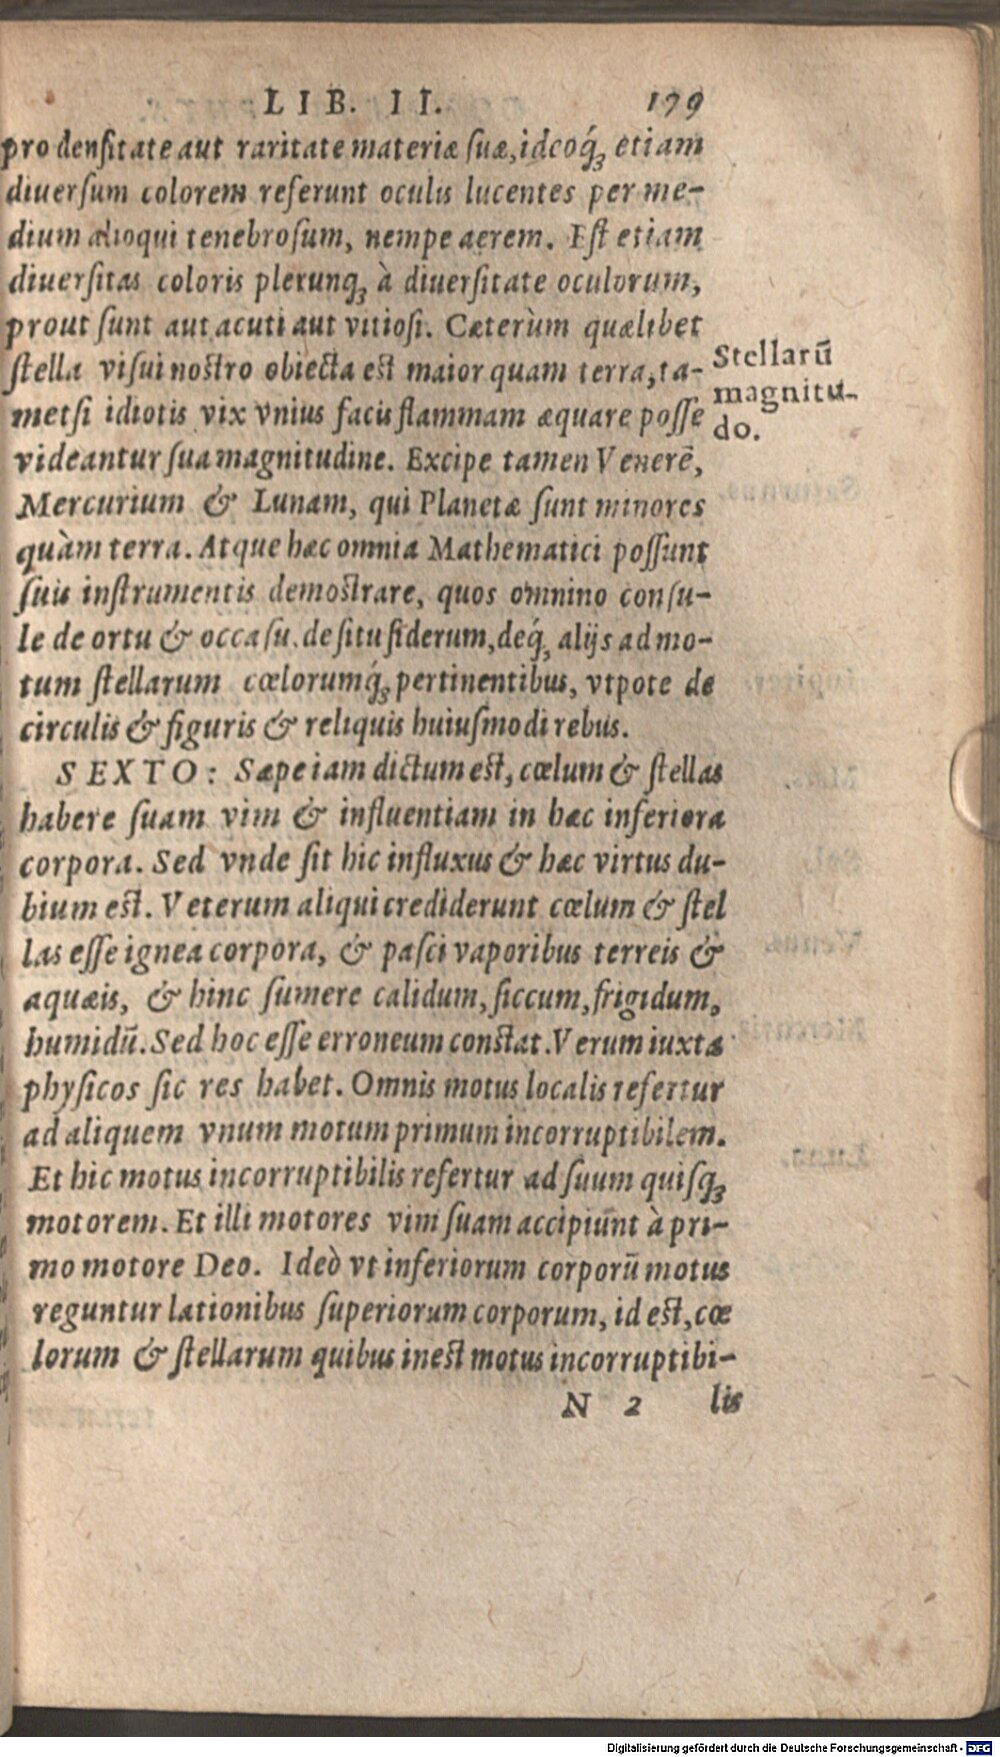 LIB. II. 179
pro densitate aut raritate materiæ suæ, ideoq́ꝫ etiam
diuersum colorem referunt oculis lucentes per me-
dium alioqui tenebrosum, nempe aerem. Est etiam
diuersitas coloris plerunqꝫ à diuersitate oculorum,
prout sunt aut acuti aut vitiosi. Cæterùm quælibet
stella visui nostro obiecta est maior quam terra, ta-
metsi idiotis vix vnius facis flammam æquare posse
videantur sua magnitudine. Excipe tamen Venerẽ,
Mercurium & Lunam, qui Planetæ sunt minores
quàm terra. Atque hæc omnia Mathematici possunt
suis instrumentis demostrare, quos omnino consu-
le de ortu & occasu. de situ siderum, deq́ꝫ alijs ad mo-
tum stellarum cœlorumq́ꝫ pertinentibus, vtpote de
circulis & figuris & reliquis huiusmodi rebus.
Stellarũ
magnitu-
do.
SEXTO: Sæpe iam dictum est, cœlum & stellas
habere suam vim & influentiam in hæc inferiora
corpora. Sed vnde sit hic influxus & hæc virtus du-
bium est. Veterum aliqui crediderunt cœlum & stel
las esse ignea corpora, & pasci vaporibus terreis &
aquæis, & hinc sumere calidum, siccum, frigidum,
humidũ. Sed hoc esse erroneum constat. Verum iuxta
physicos sic res habet. Omnis motus localis refertur
ad aliquem vnum motum primum incorruptibilem.
Et hic motus incorruptibilis refertur ad suum quisqꝫ
motorem. Et illi motores vim suam accipiunt à pri-
mo motore Deo. Ideò vt inferiorum corporũ motus
reguntur lationibus superiorum corporum, id est, cœ
lorum & stellarum quibus inest motus incorruptibi-
N 2 lis
Digitalisierung gefördert durch die Deutsche Forschungsgemeinschaft - DFG